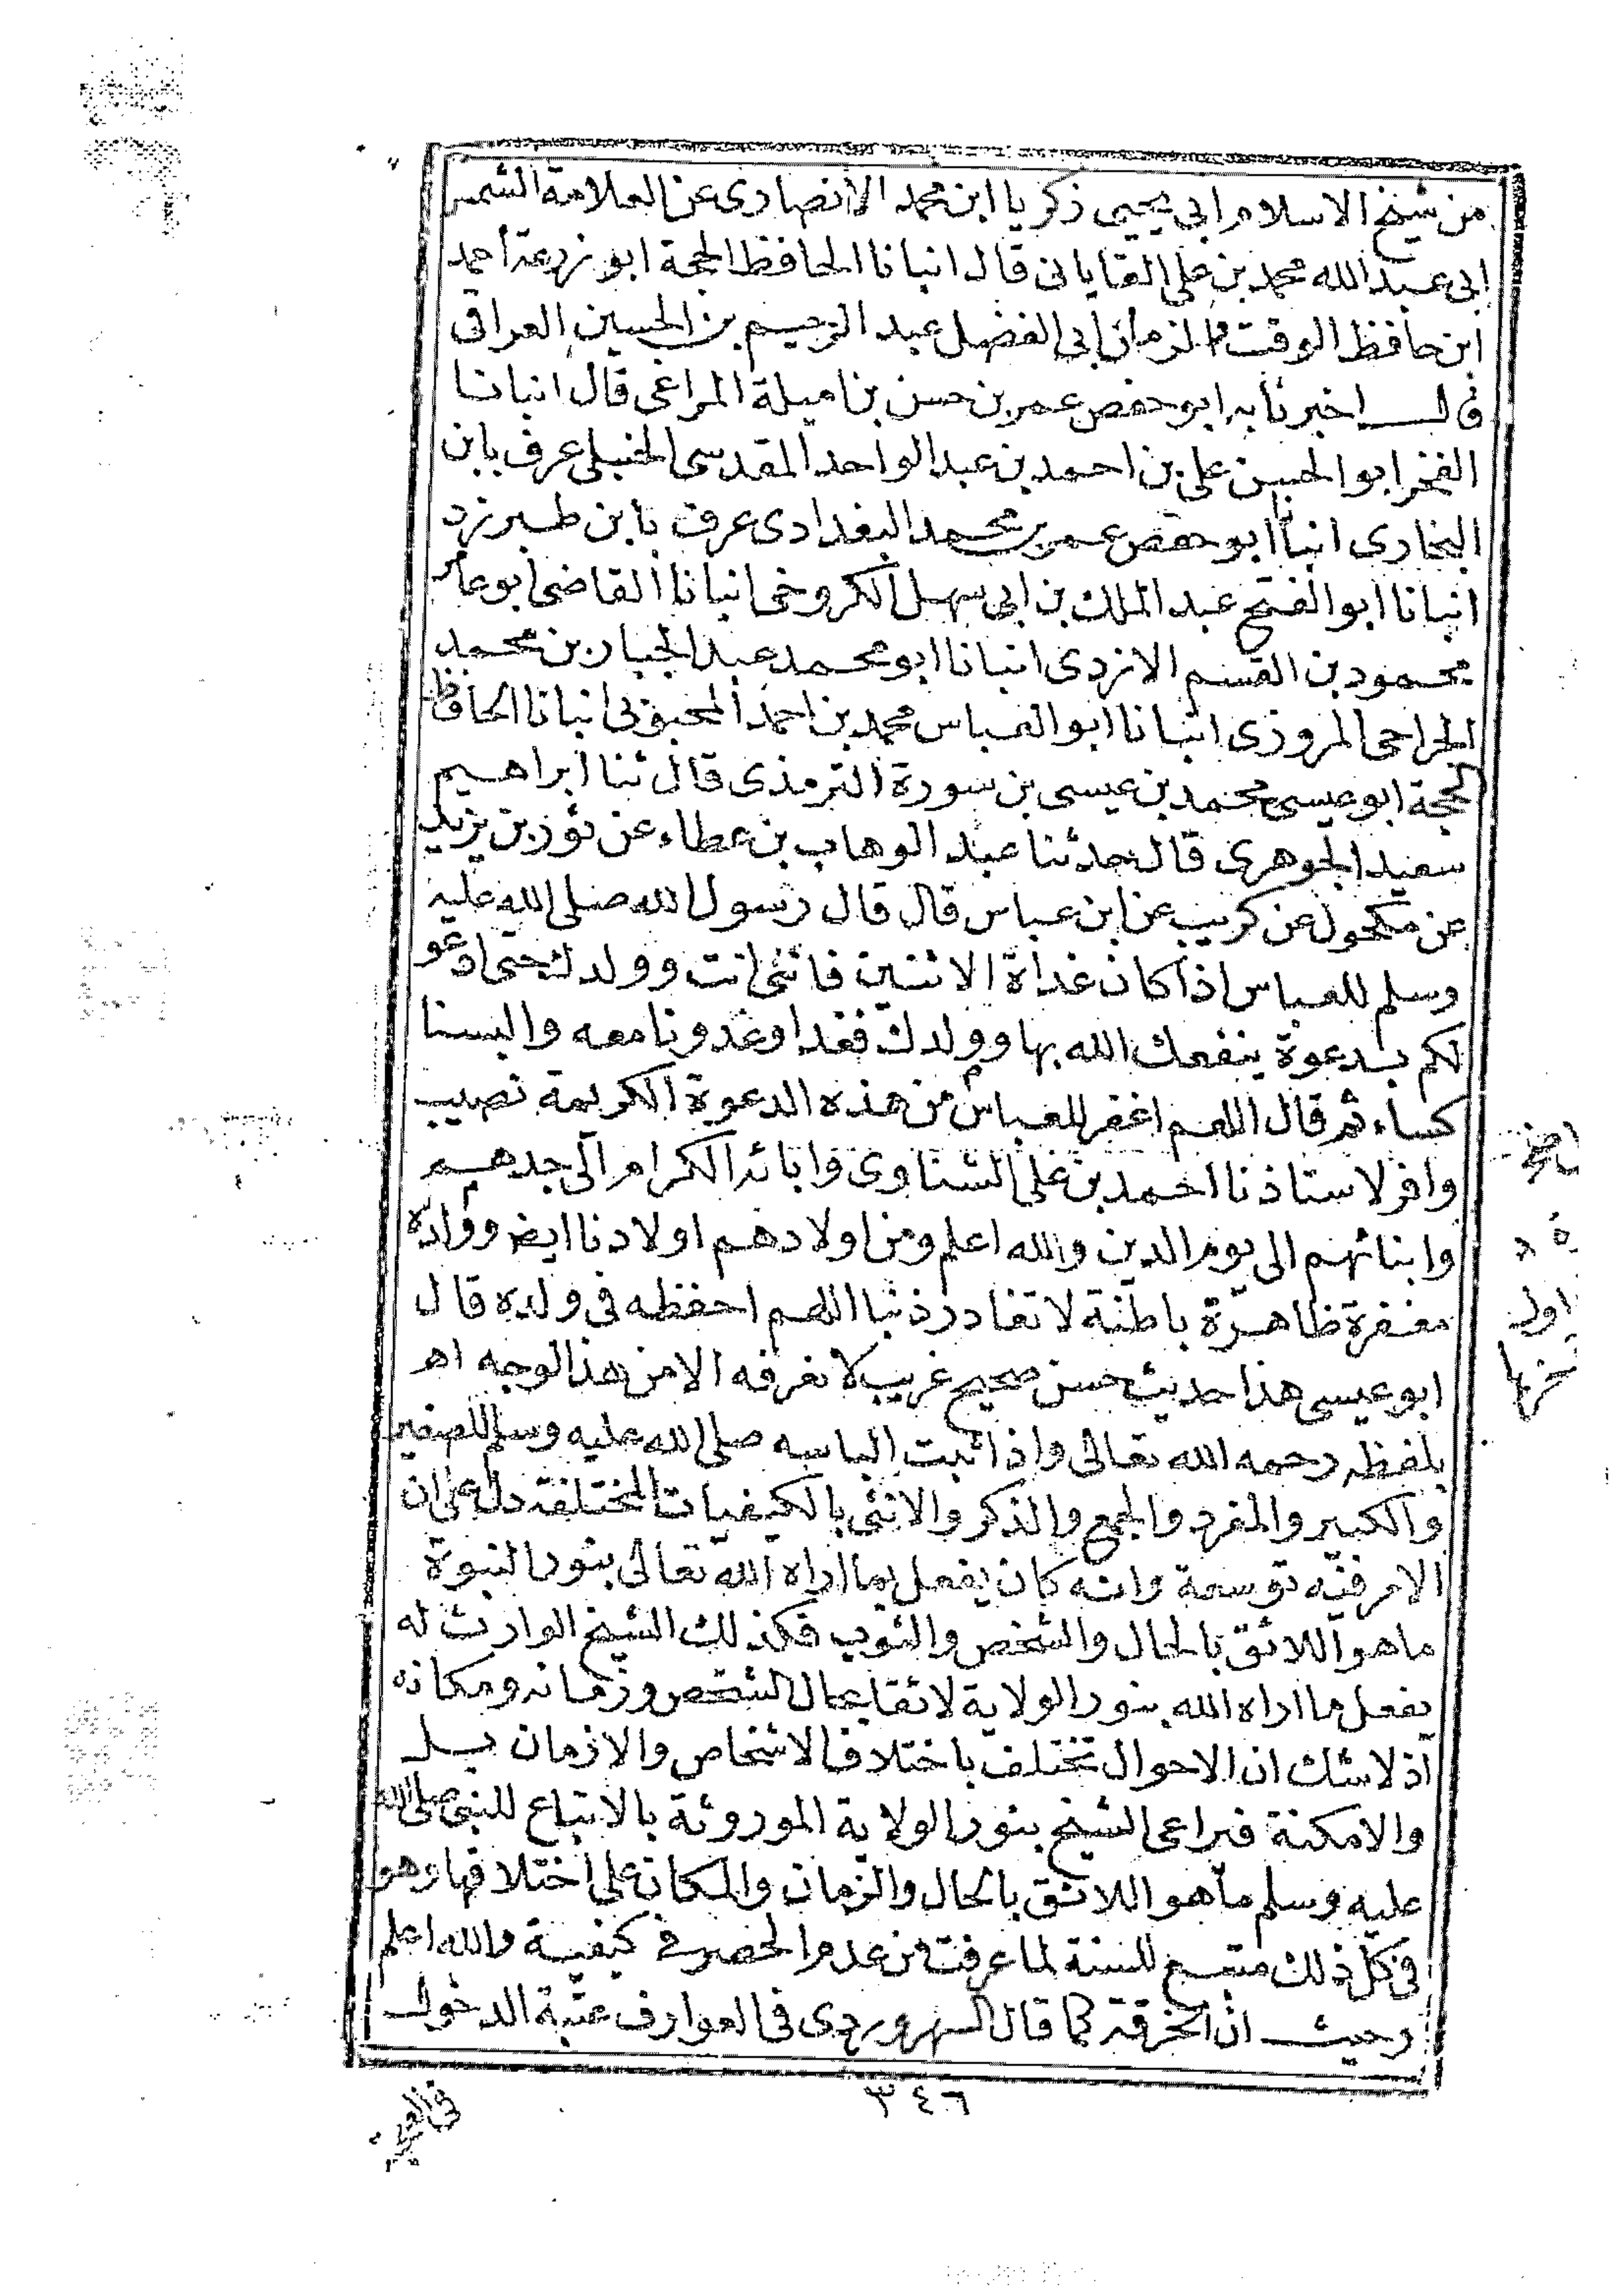 من شيخ الاسلام ابى يحيى زكريا ابن محمد الانصارى عن العلامة الشمس
ابى عبد الله محمد بن على القاياتى قال انبانا الحافظ الحجة ابو زرعة أحمد
ابن حافظ الوقت الزمان أبى الفضل عبد الرحيم بن الحسين العراقى
قال اخبرنا به ابو حفص عمر بن حسن بن اميلة المراغى قال انبانا
الفخر ابو الحسن على بن احمد بن عبد الواحد المقدسى الحنبلى عرف بابن
البخارى انبأنا ابو حفص عمر بن محمد البغدادى عرف بابن طبرزد
انبانا ابو الفتح عبد الملك بن ابى سهل الكروخى انبانا القاضى ابو عامر
محمود بن القسم الازدى انبانا ابو محمد عبد الجبار بن محمد
الجراحى المروزى انبانا ابو العباس محمد بن احمد المحبوبى انبانا الحافظ
الحجة ابو عيسى محمد بن عيسى بن سورة الترمذى قال ثنا ابراهيم
سعيد الجوهرى قال حدثنا عبد الوهاب بن عطاء عن ثور بن يزيد
عن مكحول عن كريب عن ابن عباس قال قال رسول الله صلى الله عليه
وسلم للعباس اذا كان غداة الاثنين فائتنى انت وولدك حتى ادعو
لكم بدعوة ينفعك الله بها وولدك فغدا وغدونا معه والبسنا
كساء ثم قال اللهم اغفر للعباس من هذه الدعوة الكريمة نصيب
وافر لاستاذنا احمد بن على الشناوى وابائه الكرام الى جدهم
وابنائهم الى يوم الدين والله اعلم ومن اولادهم اولادنا ايضا وولده
مغفرة ظاهرة باطنة لا تغادر ذنبا اللهم احفظه فى ولده قال
ابو عيسى هذا حديث حسن صحيح غريب لا نعرفه الا من هذا الوجه اهـ
بلفظه رحمه الله تعالى واذا ثبت الباسه صلى الله عليه وسلم للصغير
والكبير والمفرد والجمع والذكر والانثى بالكيفيات المختلفة دل على ان
الامر فيه توسعة وانه كان يفعل بما اراه الله تعالى بنور النبوة
ما هو اللائق بالحال والشخص والثوب فكذلك الشيخ الوارث له
يفعل ما اراه الله بنور الولاية لائقا بحال الشخص وزمانه ومكانه
اذ لا شك ان الاحوال تختلف باختلاف الاشخاص والازمان بل
والامكنة فيراعى الشيخ بنور الولاية الموروثة بالاتباع للنبى صلى الله
عليه وسلم ما هو اللائق بالحال والزمان والمكان على اختلافها وهو
فى كل ذلك متبع للسنة لما عرفت من عدم الحصر فى كيفية والله اعلم
وحيث ان الخرقة كما قال السهروردى فى العوارف عتبة الدخول
٣٤٦